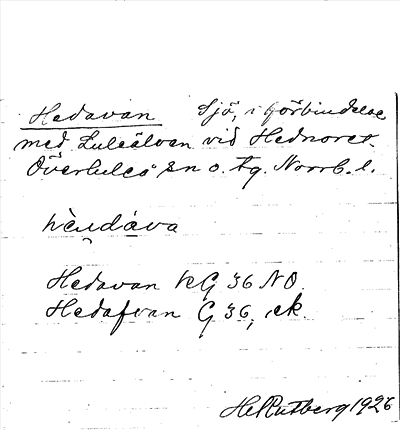 Hedavan Sjö, i förbindelse
med Luleälven vid Hednoret.
Överluleå sn o. tg. Norrb. l.
Hedavan KG 36 NO.
Hedafvan G 36, ek.
H Rutberg 1926